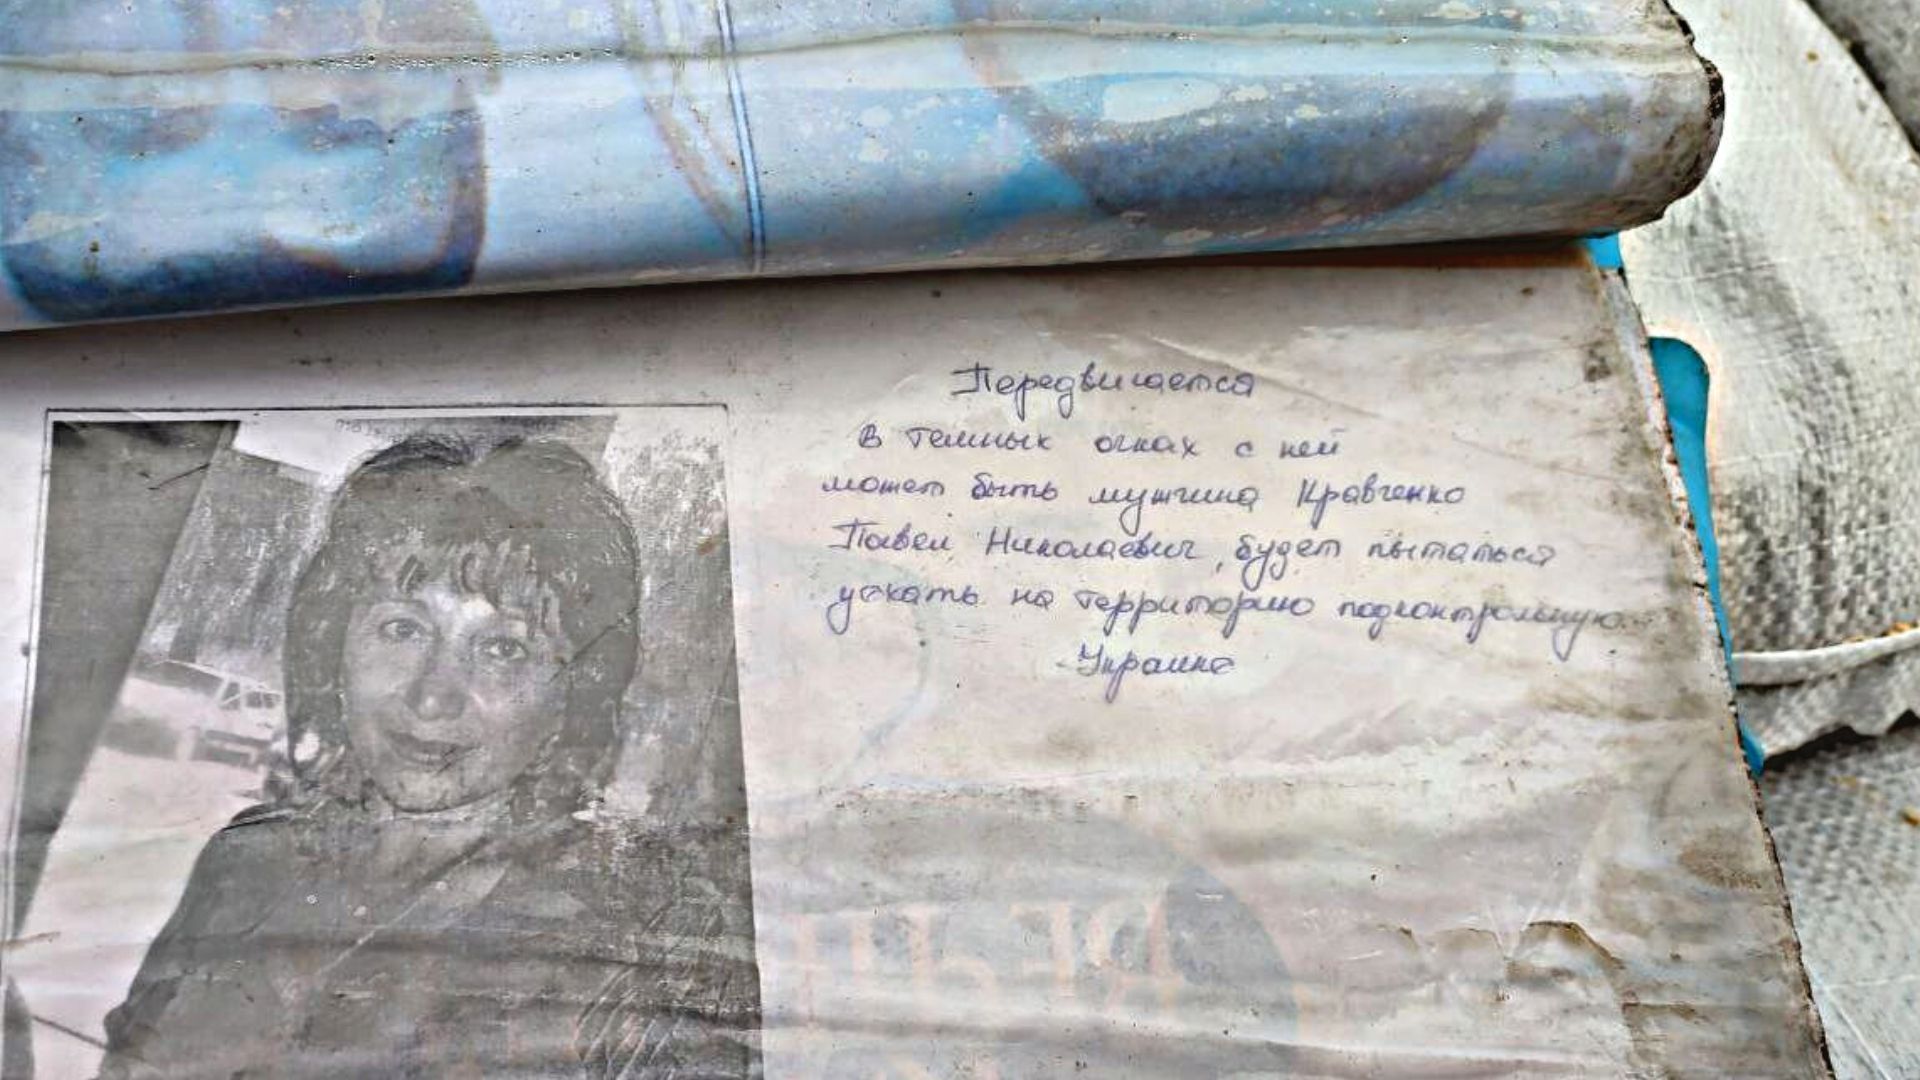 Передвигается
в темных очках с ней
может быть мужчина Кравченко
Павел Николаевич, будет пытаться
уехать на территорию подконтрольную
Украине